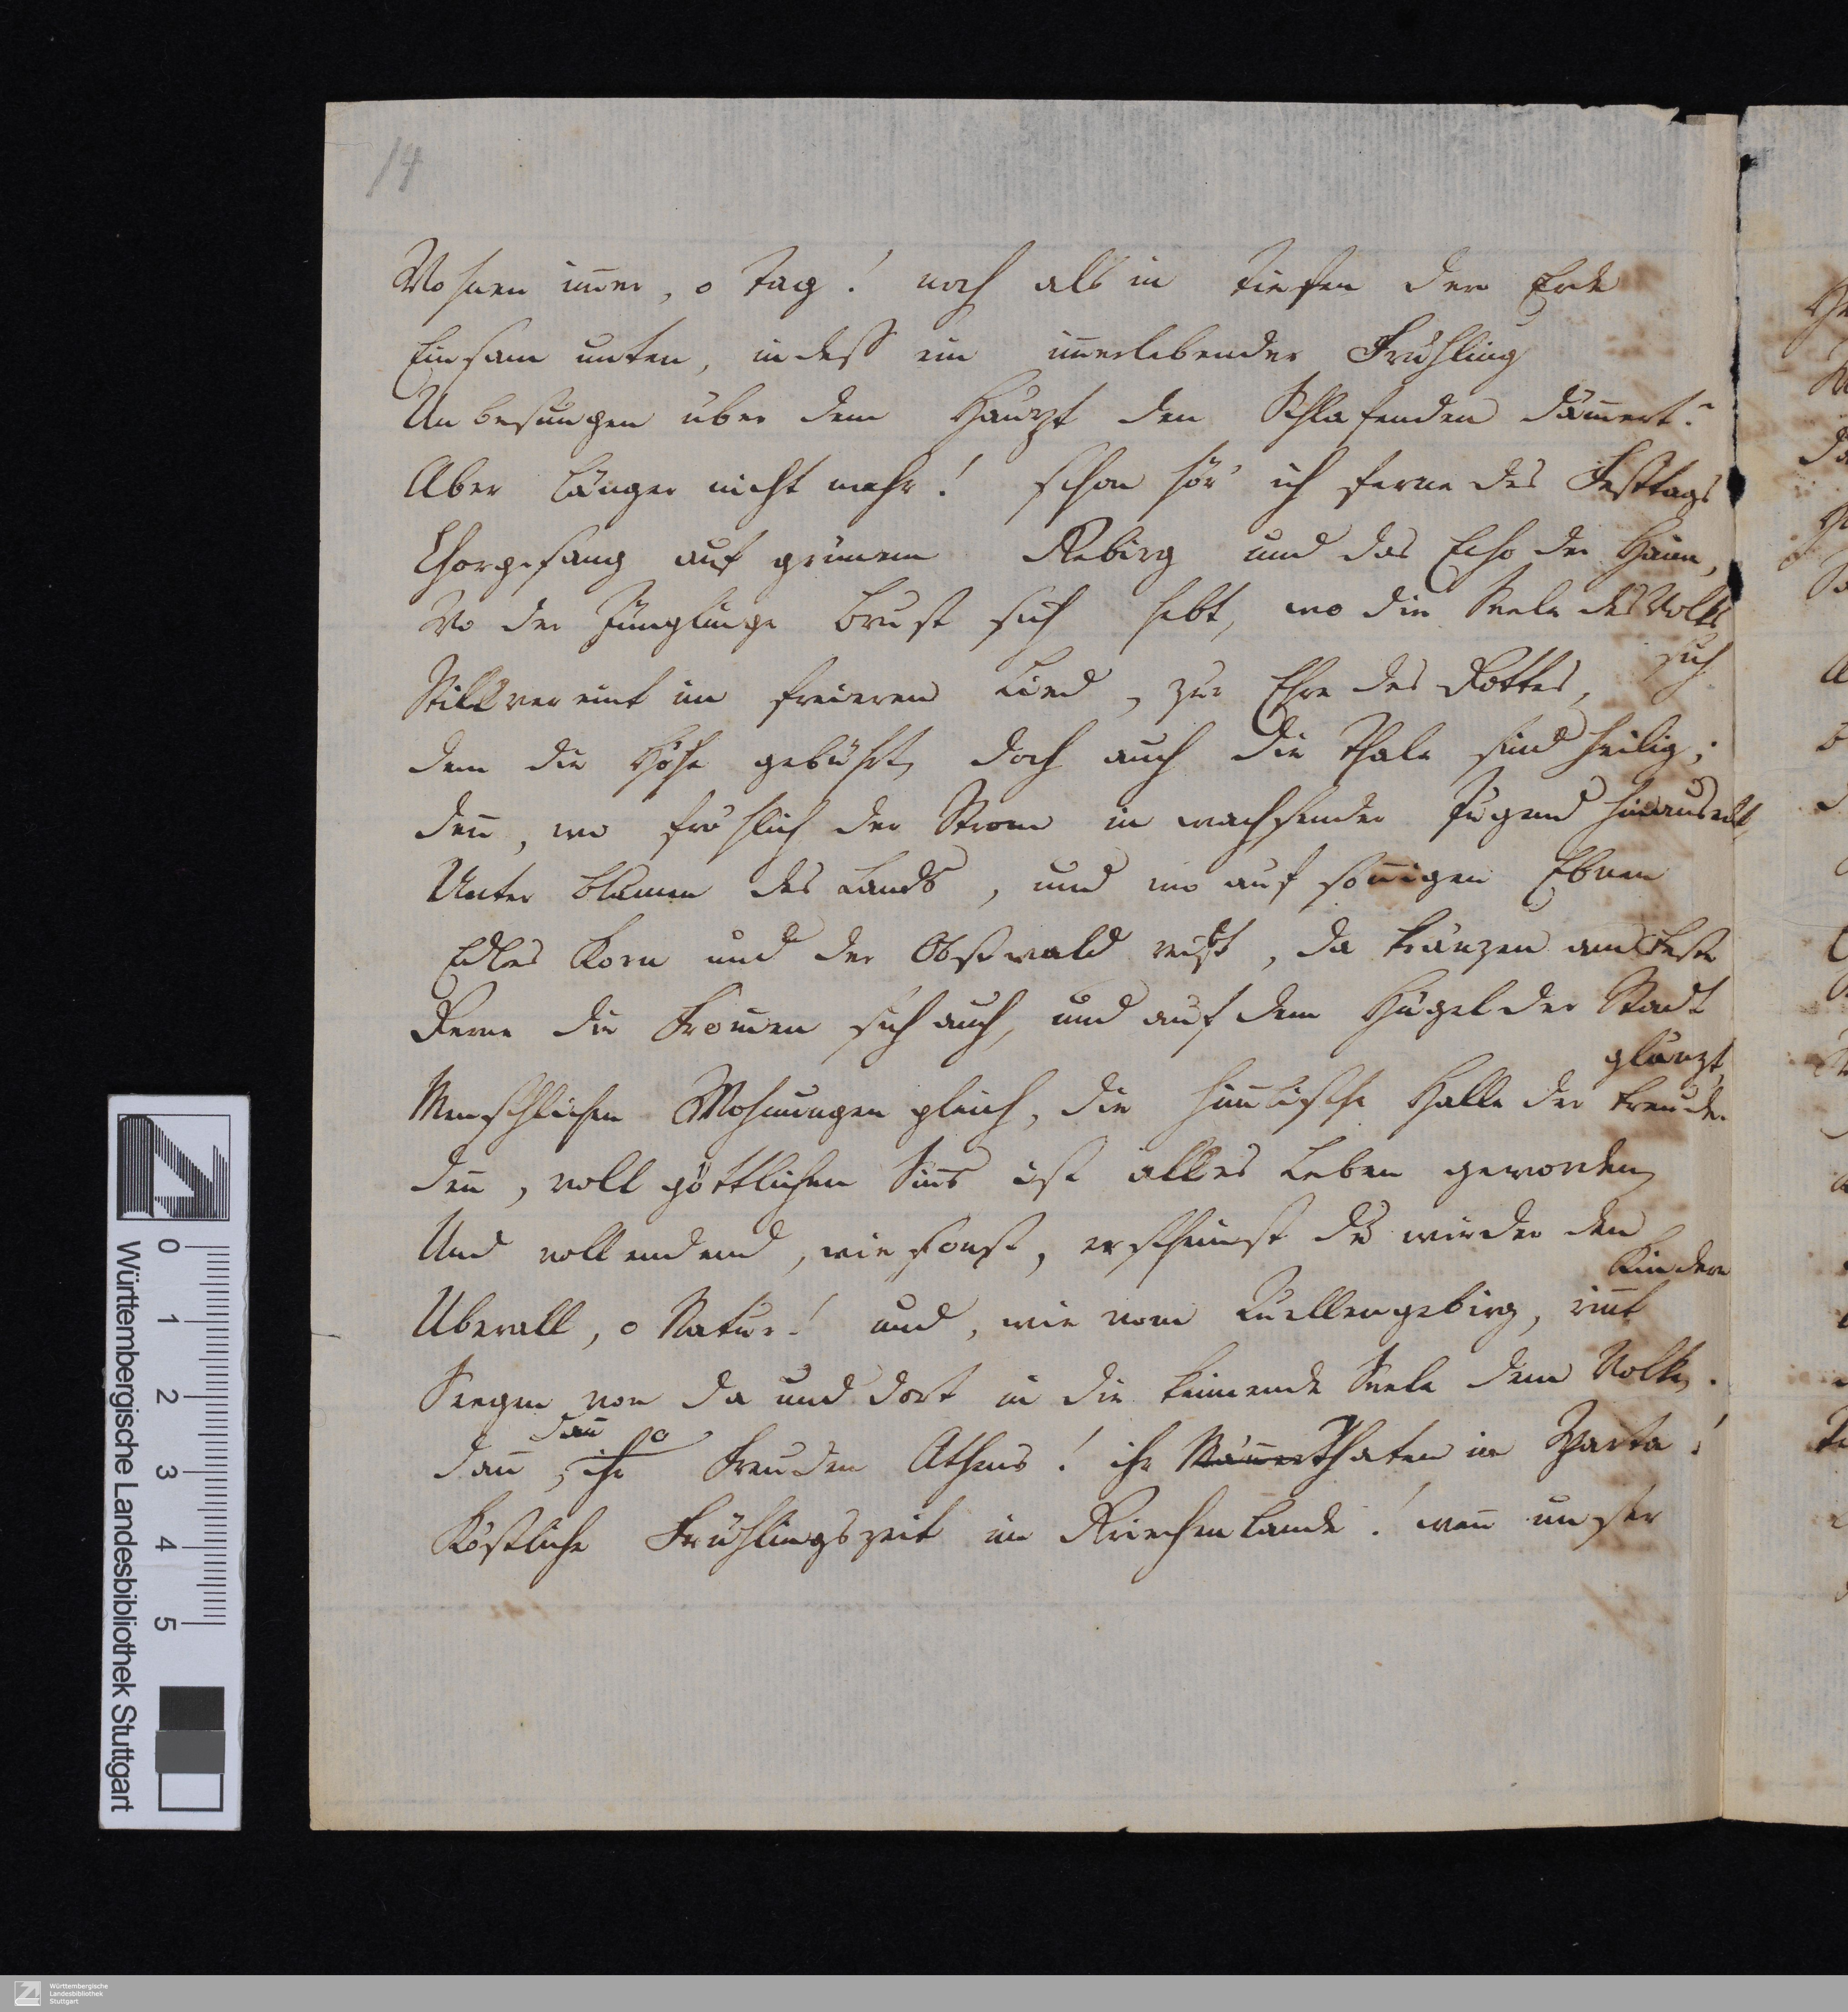 14
Wohnen im̄er, o Tag! noch als in Tiefen der Erde
Einsam unten, indeß ein im̄erlebender Frühling
Unbesungen über dem Haupt den Schlafenden däm̄ert?
Aber länger nicht mehr! schon hör' ich ferne des Festtags
Chorgesang auf grünem Gebirg und das Echo der Haine,
Wo der Jünglinge Brust sich hebt, wo die Seele des Volks
sich
Stillvereint im freieren Lied, zur Ehre des Gottes,
dem die Höhe gebührt, doch auch die Thale sind heilig;
deñ, wo fröhlich der Strom in wachsender Jugend hinauseilt,
Unter Blumen des Lands, und wo auf soñigen Ebnen
Edles Korn und der Obstwald reift, da kränzen am Feste
Gerne die From̄en sich auch, und auf dem Hügel der Stadt
glänzt,
Menschlichen Wohnungen gleich, die him̄lische Halle der Freude.
deñ, voll göttlichen Siñs ist alles Leben geworden,
Und vollendend, wie sonst, erscheinst du wieder den
Kindern
Überall, o Natur! und, wie vom Quellengebirg, riñt
Seegen von da und dort in die keimende Seele dem Volke.
dañ o
dañ, ihr Freuden Athens! ihr Mäñer Thaten in Sparta!
Köstliche Frühlingszeit im Griechenlande! weñ unser
0 1 2 3 4 5
Württembergische Landesbibliothek Stuttgart
Württembergische
Landesbibliothek
Stuttgart